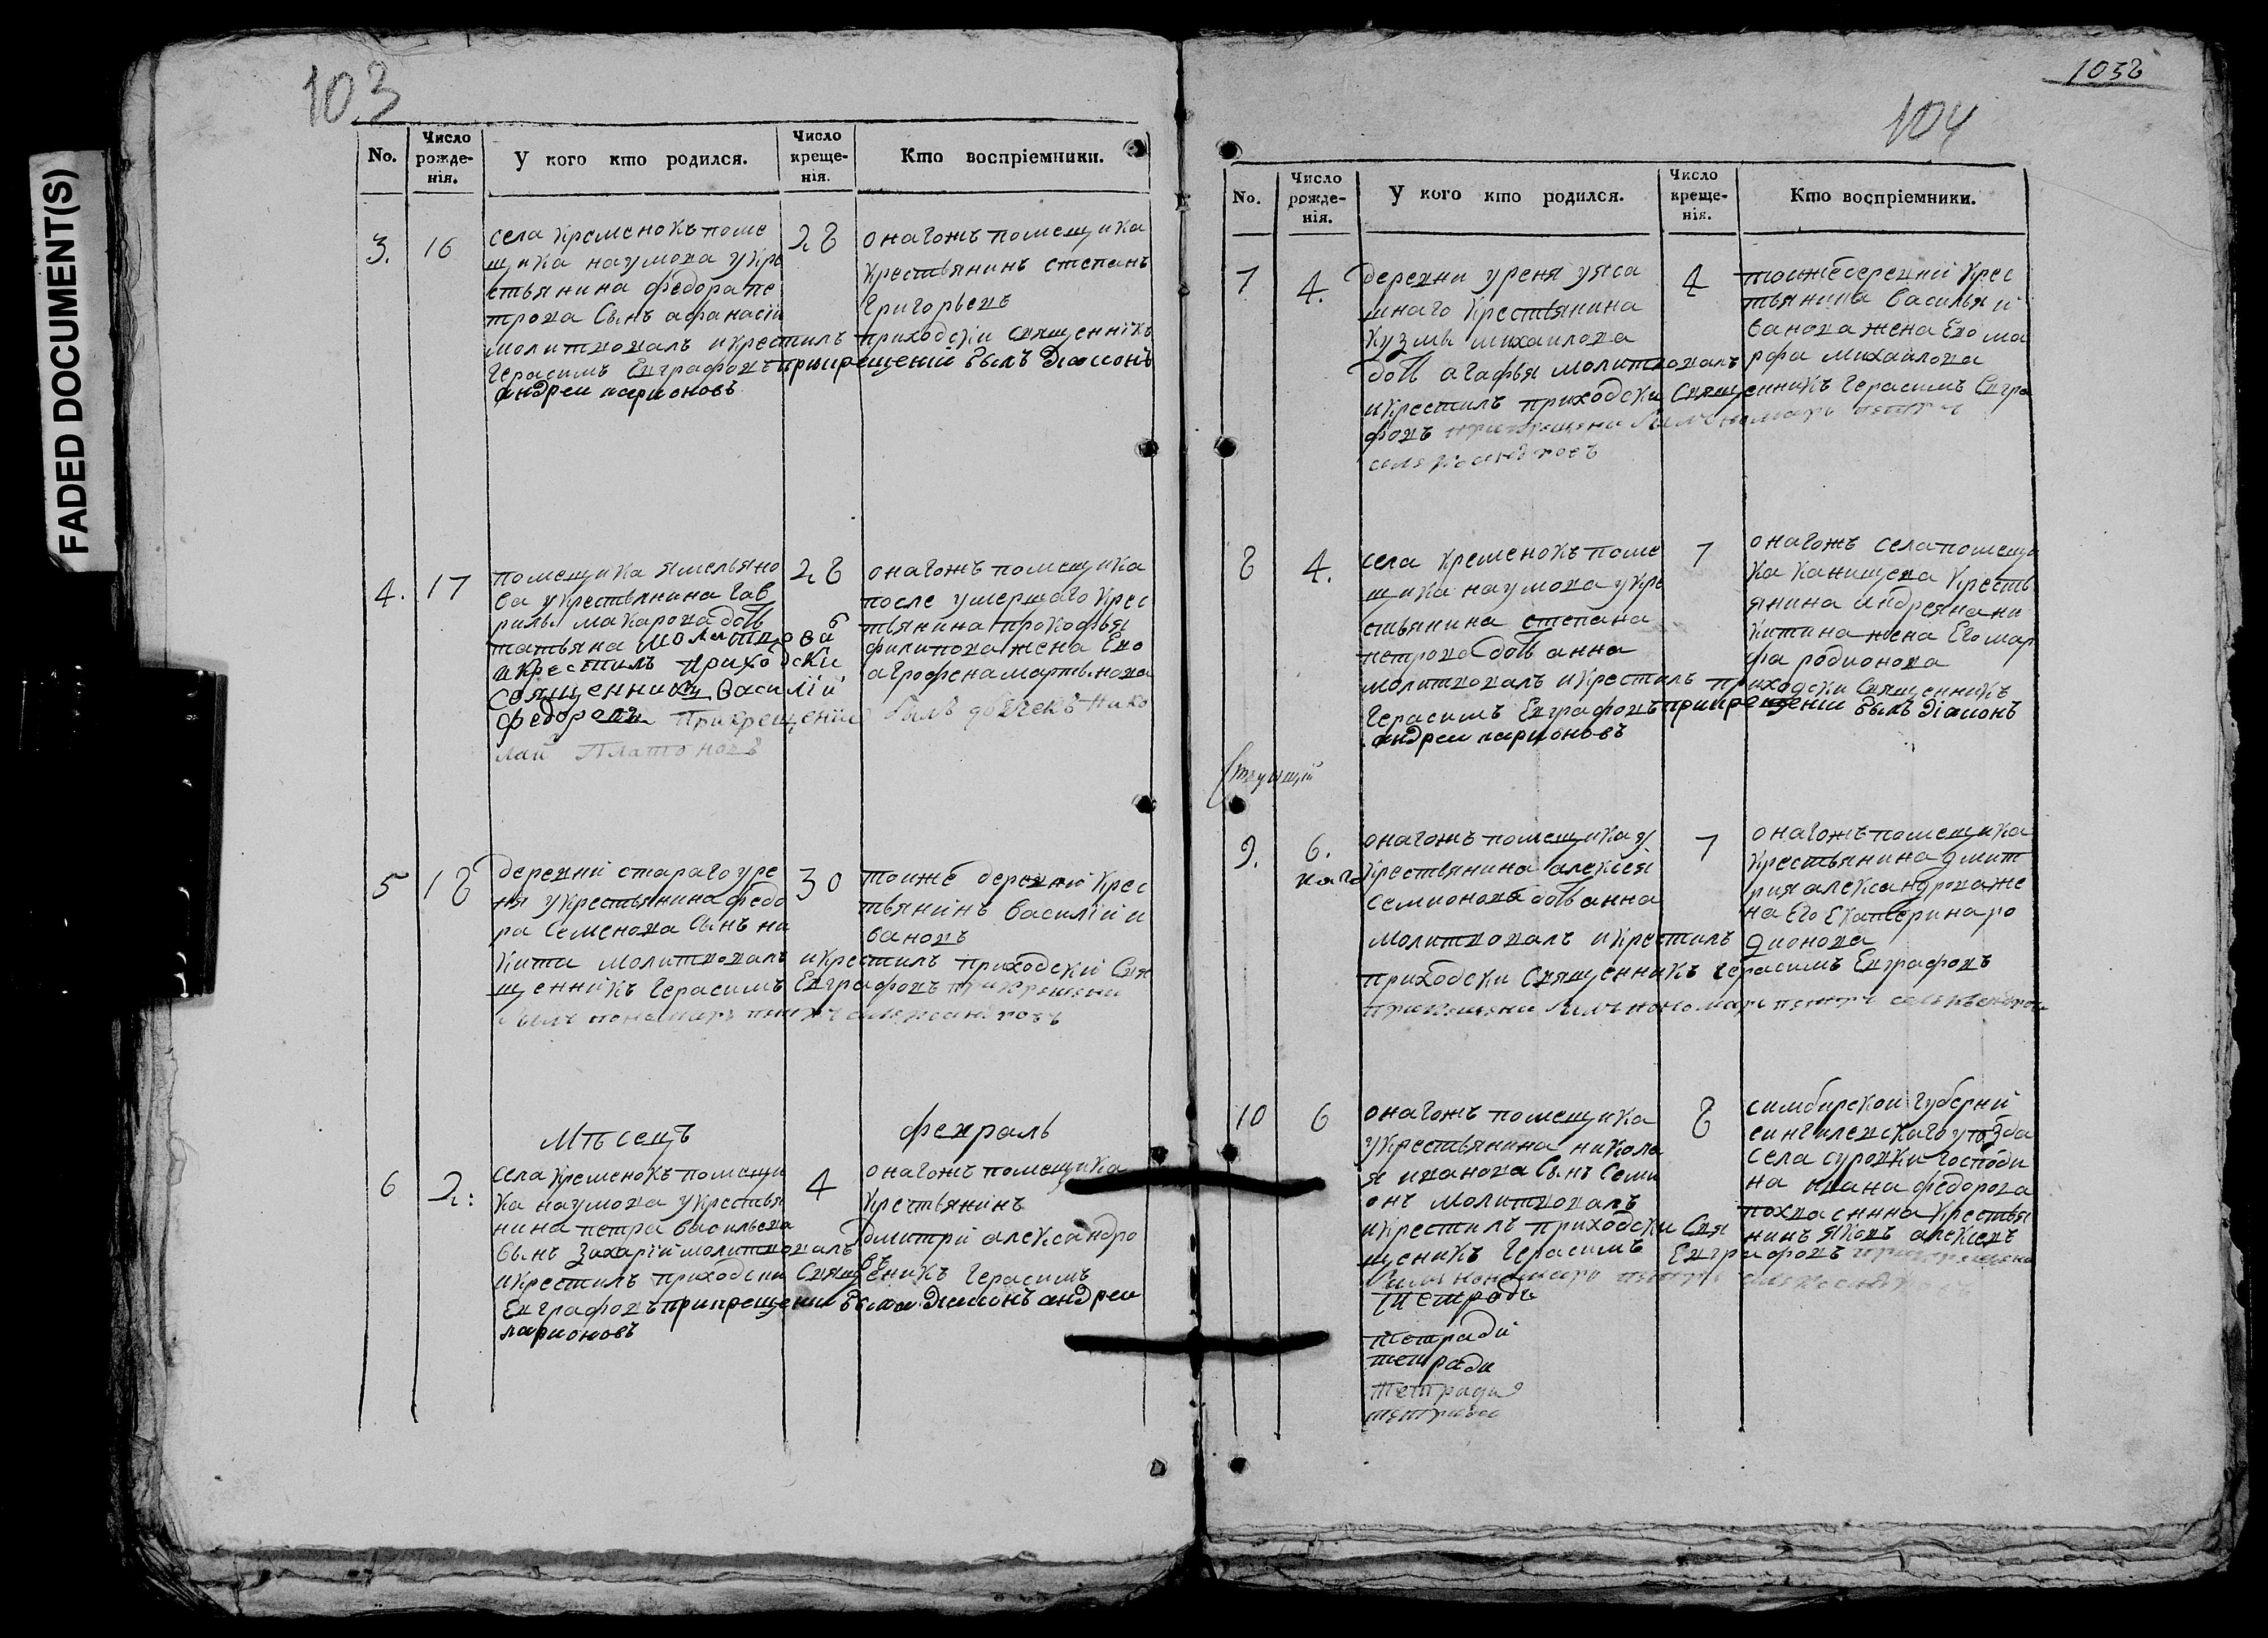 FADED DOCUMENT(S)
103
No.
Число рожде-нія.
У кого кто родился.
Число креще-нія.
Кто воспріемники.
3.
16
села кременокъ поме
щика наумова укре
стьянина федора пе
трова сынъ афанасіи
28
онагожъ помещика
крестьянинъ степанъ
григорьевъ
молитвовалъ икрестилъ приходскіи священнікъ
герасимъ Евграфовъ прикрещеніи былъ діаконъ
андреи ларионовъ
4.
17
помещика ямельяно
ва укрестьянина гав
рилы макарова дочь
татьяна молитвова
икрестилъ приходски
священникъ василіи
федоровъ прикрещеніи былъ дьячекъ нико
лай Платоновъ
28
онагожъ помещика
после умершаго крес
тьянина прокофья
филипова жена Ево
агрофена мартынова
5
18
деревни стараго уре
ня укрестьянина федо
ра семенова сынъ ни
кита молитвовалъ икрестилъ приходскіи свя
щеннікъ герасимъ Евграфовъ прикрещени
былъ понамарь петръ александровъ
30
тоиже деревни крес
тьянінъ василіи и
вановъ
мѣсецъ
февраль
6
2:
села кременокъ помещи
ка наумова укрестья
нина петра васильева
сынъ захаріи молитвовалъ
икрестилъ приходски священикъ герасимъ
Евграфовъ прикрещении былъ діаконъ андреи
ларионовъ
4
онагожъ помещика
крестьянинъ
дмитри александро
въ
1032
104
No.
Число рожде-нія.
У кого кто родился.
Число креще-нія.
Кто воспріемники.
7
4.
деревни уреня уяса
шнаго крестьянина
кузмы михаилова
дочь агафья молитвовалъ
икрестилъ приходски священникъ герасимъ Евгра
фовъ прикрещени былъ понамарь петръ
александровъ
4
тоижедеревни крес
тьянина василья и
ванова жена Ево ма
рфа михаилова
8
4.
села кременокъ поме
щика наумова укре
стьянина степана
петрова дочь анна
молитвовалъ икрестилъ приходски священникъ
герасимъ Евграфовъ прикрещеніи былъ діаконъ
андреи ларионовъ
7
онагожъ села помещи
ка канищева кресть
янина андреяна ни
китина жена Его мар
фа родионова
9.
6.
онагожъ помещика у
крестьянина алексея
семионова дочь анна
молитвовалъ икрестилъ
приходски священникъ герасимъ Евграфовъ
прикрещени былъ пономарь петръ александров
7
онагожъ помещика
крестьянина дмит
рия александрова же
на Его Екатерина ро
дионова
10
6
онагожъ помещика
укрестьянина никола
я иванова сынъ семи
онъ молитвовалъ
икрестилъ приходски свя
щеникъ герасимъ Евграфовъ прикрещени
былъ пономарь петръ александровъ
8
симбирскои губерніи
сингилевскаго уѣзда
села суровки господи
на ивана федорова
крестья
нинъ яковъ алексеевъ
тетради
тетради
тетради
тетради
тетради